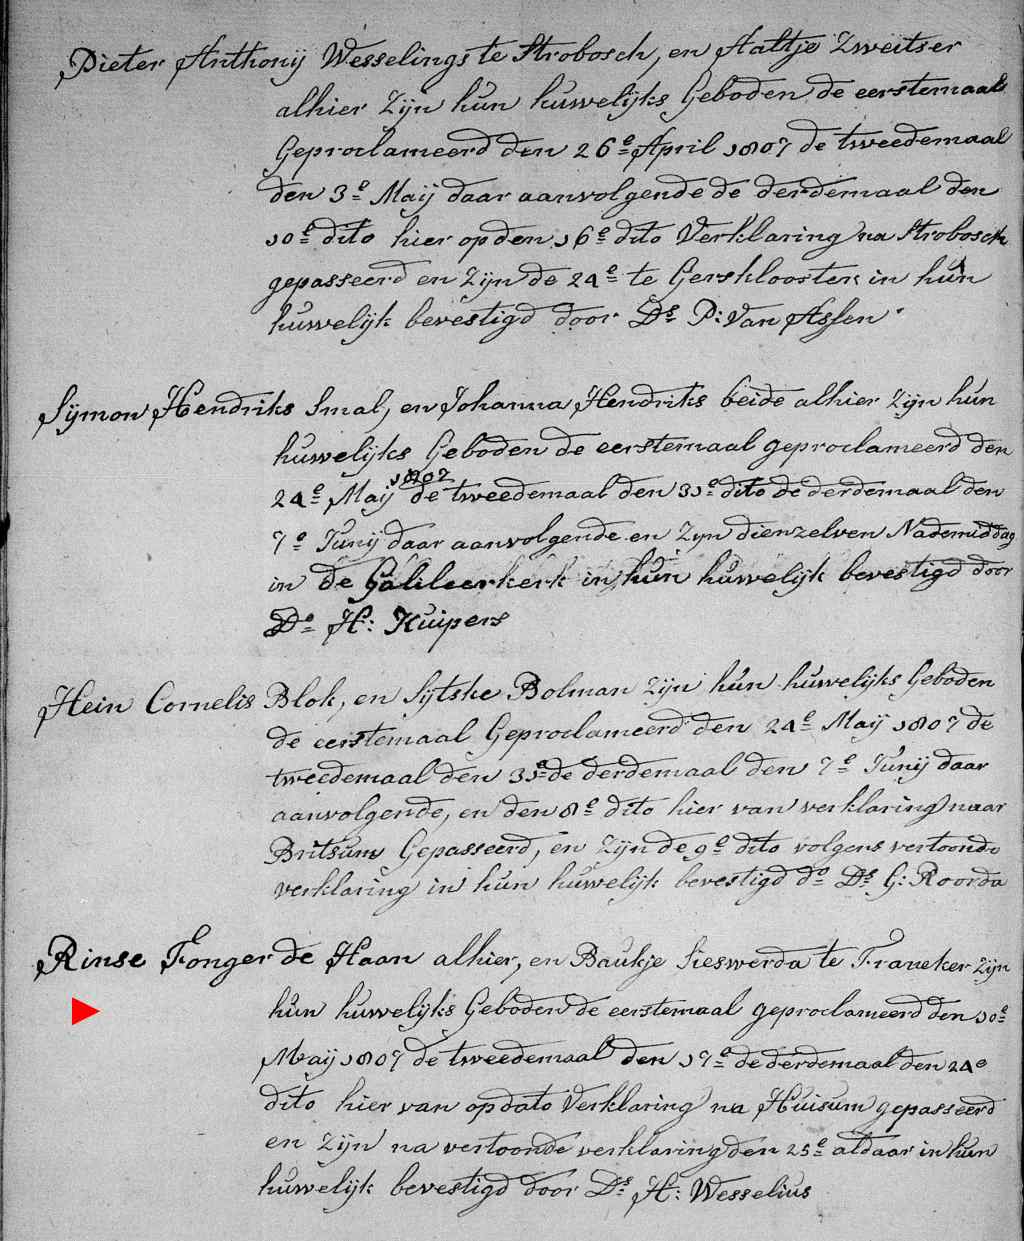 Pieter Anthonij Wesselings te Strobosch, en Aaltje Zweitser
alhier Zijn hun huwelijks Geboden de eerstemaal
Geproclameerd den 26e April 1807 de tweedemaal
den 3e Maij daar aanvolgende de derdemaal den
10e dito hier op den 16e dito Verklaring na Strobosch
gepasseerd en Zijn de 24e te Gersklooster in hun
huwelijk bevestigd door Ds P: Van Assen
Sijmon Hendriks Smal, en Johanna Hendriks beide alhier Zijn hun
huwelijks Geboden de eerstemaal geproclameerd den
24e Maij 1807 de tweedemaal den 31e dito de derdemaal den
7e Junij daar aanvolgende en Zyn dienzelven Nademiddag
in de Galileerkerk in hun huwelijk bevestigd door
Do H: Kuipers
Hein Cornelis Blok, en Sijtske Bolman Zijn hun huwelijks Geboden
de eerstemaal Geproclameerd den 24e Maij 1807 de
tweedemaal den 31e de derdemaal den 7e Junij daar
aanvolgende, en den 8e dito hier van verklaring naar
Britsum Gepasseerd, en Zijn de 9e dito volgens vertoonde
verklaring in hun huwelijk bevestigd do Ds G: Roorda
Rinse Fonger de Haan alhier, en Baukje Sieswerda te Franeker Zijn
hun huwelijks Geboden de eerstemaal geproclameerd den 10e
Maij 1807 de tweedemaal den 17e de derdemaal den 24e
dito hier van opdato Verklaring na Huisum gepasseerd
en Zijn na vertoonde verklaring den 25e aldaar in hun
huwelijk bevestigd door Ds H: Wesselius